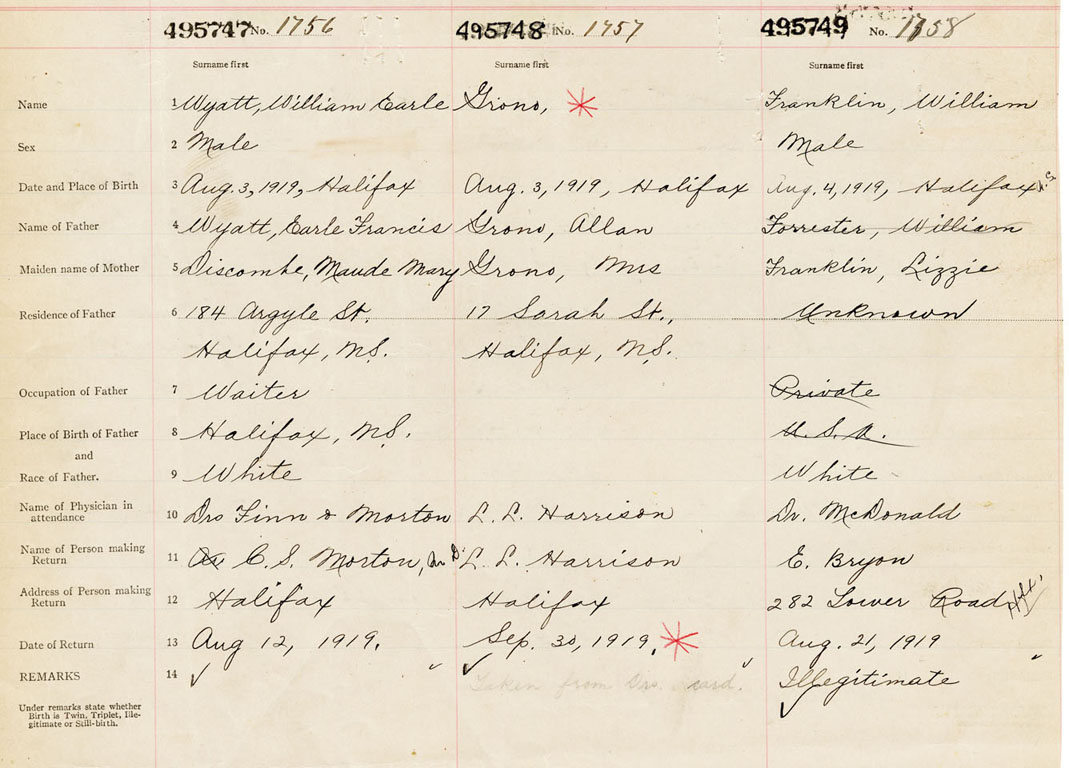 495747 No. 1756 495748 No. 1757 495749 No. 1758
Surname first Surname first Surname first
Name 1 Wyatt, William Earle Grono, Franklin, William
Sex 2 Male Male
Date and Place of Birth 3 Aug. 3, 1919, Halifax Aug. 3, 1919, Halifax Aug, 4, 1919, Halifax N.S.
Name of Father 4 Wyatt, Earle Francis Grono, Allan Forrester, William
Maiden name of Mother 5 Discombe, Maude Mary Grono, Mrs Franklin, Lizzie
Residence of Father 6 184 Argyle St. 17 Sarah St., Unknown
Halifax, N.S. Halifax, N.S.
Occupation of Father 7 Waiter Private
Place of Birth of Father 8 Halifax, N.S. U.S.A.
and
Race of Father. 9 White White
Name of Physician in
attendance 10 Drs Finn & Morton L. L. Harrison Dr. McDonald
Name of Person making
Return 11 C. S. Morton, L. L. Harrison E. Bryon
Address of Person making
Return 12 Halifax Halifax 282 Lower Road Hfx.
Date of Return 13 Aug 12, 1919. Sep. 30, 1919. Aug. 21, 1919
REMARKS 14 Taken from Drs. card. Illegitimate
Under remarks state whether
Birth is Twin, Triplet, Ille-
gitimate or Still-birth.